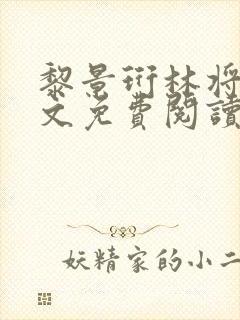 黎景衍林将
文免費閱讀
妖精家的小二